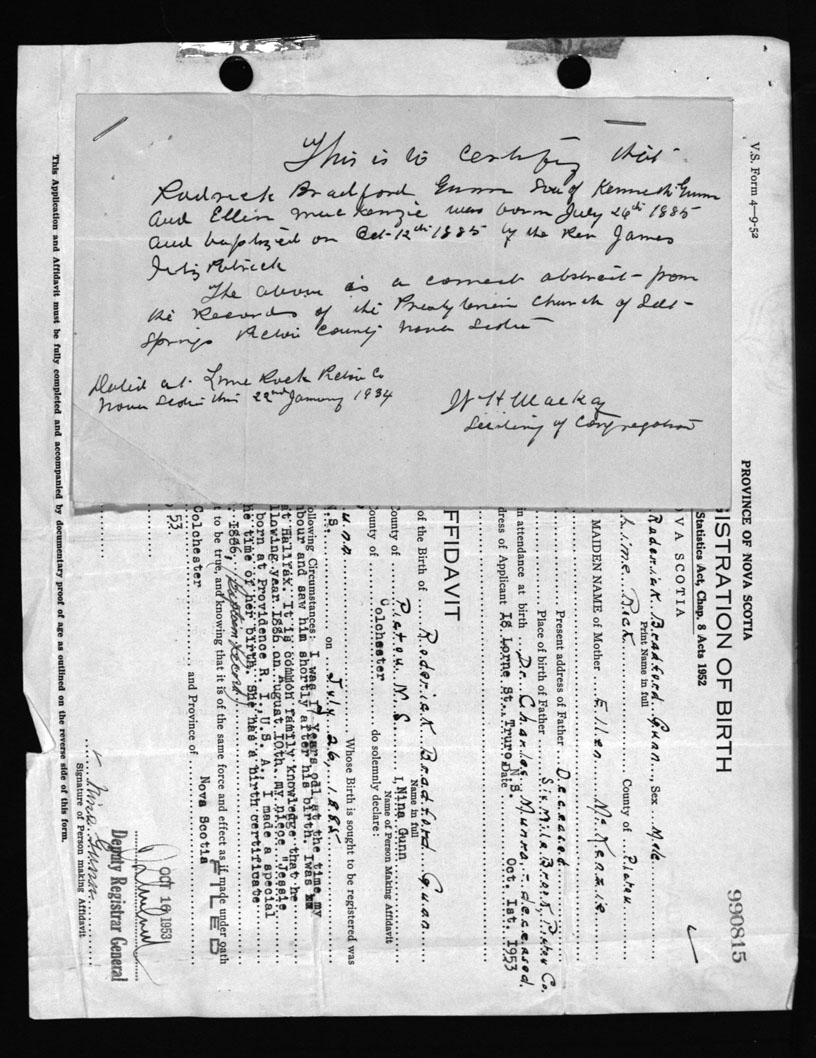 This is to certify that
Rodrick Bradford Gunn Son of Kenneth Gunn
and Ellen MacKenzie was born July 26th 1885
and baptized on Oct-12th 1885 by the Rev James
Fitzpatrick
The above is a correct abstract from
the Records of the Presbyterian Church of Salt-
Springs Pictou County Nova Scotia
Dated at Lime Rock Pictou Co
Nova Scotia this 22nd January 1934
W H Mackay
of Congregation
V.S. Form 4—9-52
PROVINCE OF NOVA SCOTIA
990815
ISTRATION OF BIRTH
Statistics Act, Chap. 8 Acts 1952
OVA SCOTIA
Roderick Bradford Gunn, Sex Male
Print Name in full
Lime Rock County of Pictou
MAIDEN NAME of Mother Ellen McKenzie
Present address of Father Deceased
Place of birth of Father Six Mile Brook, Pictou Co.
in attendance at birth Dr. Charles Munro - deceased.
dress of Applicant 18 Lorne St., Truro, N.S. Date Oct. 1st. 1953
FFIDAVIT
of the Birth of Roderick Bradford Gunn
Name in full
ounty of Pictou N.S I, Nina Gunn
Name of Person Making Affidavit
ounty of Colchester do solemnly declare:
Whose Birth is sought to be registered was
.S. on July 26, 1885
ollowing Circumstances: I was 17 years odl at the time, my
bour and saw him shortly after his birth. I was
at Halifax. It is common family knowledge that he
llowing year 1886 on August 10th. my niece "Jessie
born at Providence R. I., U.S.A., I made a special
he time of her birth. She has a birth certificate
1886, (baptism record)
t to be true, and knowing that it is of the same force and effect as if made under oath
FILED
Colchester and Province of Nova Scotia
53
OCT 16 1953
Deputy Registrar General
x Nina Gunn
Signature of Person making Affidavit
This Application and Affidavit must be fully completed and accompanied by documentary proof of age as outlined on the reverse side of this form.